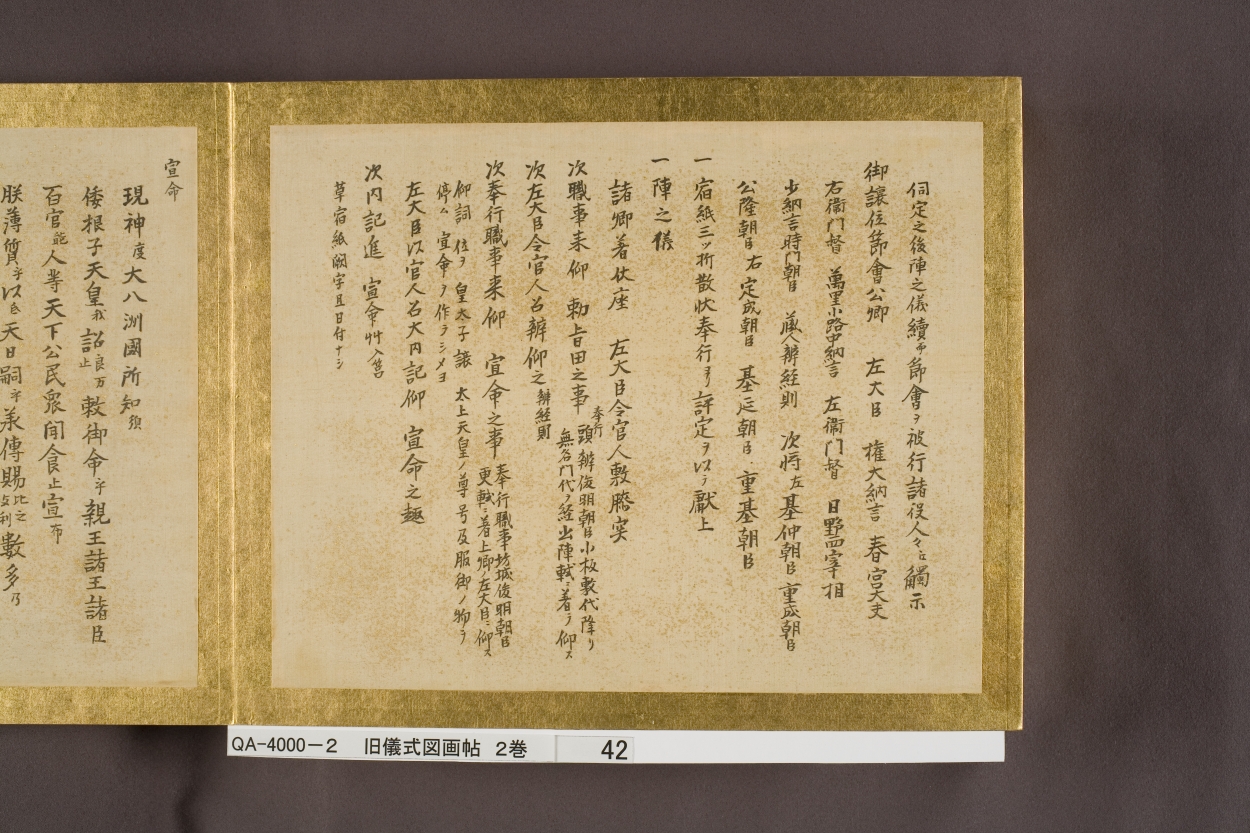 伺定之後陣之儀續而節會ヲ被行諸役人々ニ觸示
御讓位節會公卿 左大臣 權大納言 春宮大夫
右衞門督 萬里小路中納言 左衞門督 日野宰相
少納言時門朝臣 藏人辨経則 次将左基仲朝臣 重成朝臣
公隆朝臣右定成朝臣 基延朝臣 重基朝臣
一宿紙三ツ折散状奉行ヨリ評定ヲ以テ獻上
一陣之儀
諸卿着仗座 左大臣令官人敷膝突
次職事来仰 勅旨田之事 奉行頭辨俊明朝臣小板敷代降リ
無名門代ヲ経出陣軾ニ着テ仰ス
次左大臣令官人召辨仰之 辨経則
次奉行職事来仰 宣命之事 奉行職事坊城俊明朝臣
更軾ニ着上卿左大臣ニ仰ス
仰詞 位ヲ皇太子讓 太上天皇ノ尊号及服御ノ物ヲ
停ム 宣命ヲ作ラシメヨ
左大臣以官人召大内記仰 宣命之趣
次内記進 宣命艸入筥
草宿紙闕字且日付ナシ
宣命
現神度大八洲國所知須
倭根子天皇我詔良万止敕御命乎親王諸王諸臣
百官能人等天下公民衆聞食止宣布
朕薄質乎以弖天日嗣乎承傳賜比弖之利數多乃
QA-4000-2 旧儀式図画帖 2巻 42